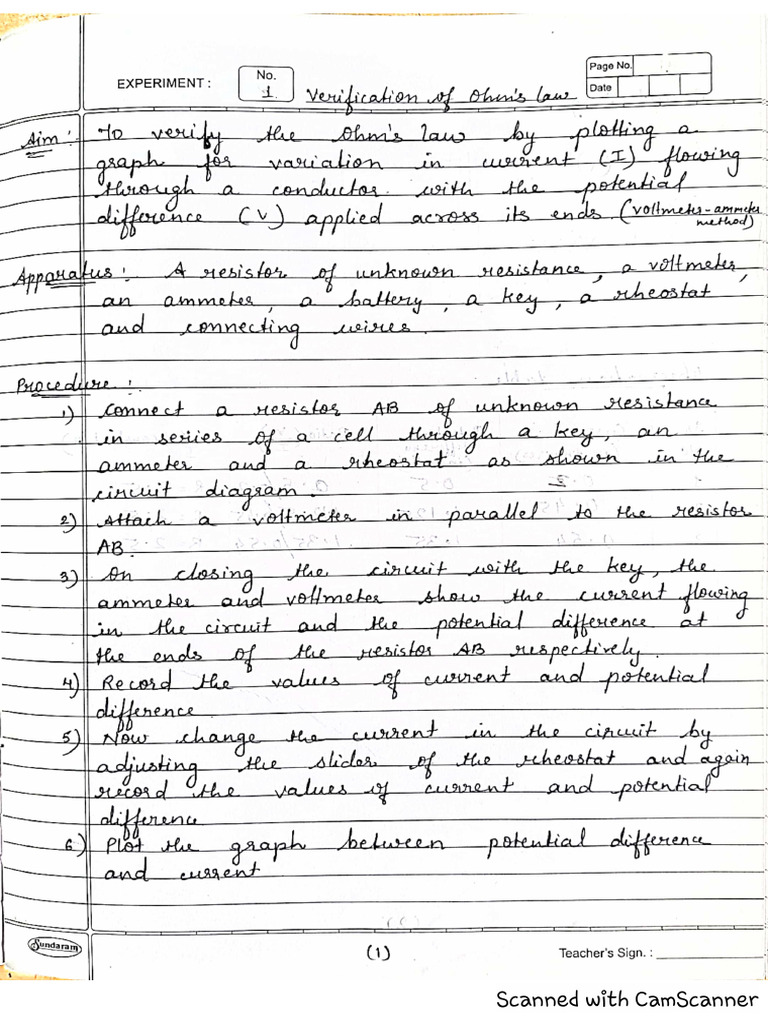 EXPERIMENT : No. 1 Verification of Ohm's law Page No. Date
Aim : To verify the Ohm's law by plotting a
graph for variation in current (I) flowing
through a conductor with the potential
difference (V) applied across its ends (voltmeter-ammeter
method)
Apparatus : A resistor of unknown resistance, a voltmeter,
an ammeter, a battery, a key, a rheostat
and connecting wires.
Procedure :
1) Connect a resistor AB of unknown resistance
in series of a cell through a key, an
ammeter and a rheostat as shown in the
circuit diagram.
2) Attach a voltmeter in parallel to the resistor
AB.
3) On closing the circuit with the key, the
ammeter and voltmeter show the current flowing
in the circuit and the potential difference at
the ends of the resistor AB respectively.
4) Record the values of current and potential
difference.
5) Now change the current in the circuit by
adjusting the slider of the rheostat and again
record the values of current and potential
difference
6) Plot the graph between potential difference
and current
Sundaram (1) Teacher's Sign. :
Scanned with CamScanner